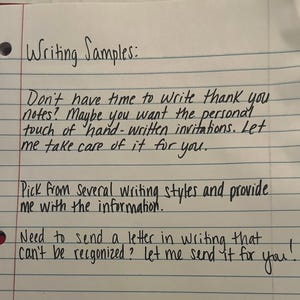 Writing Samples:
Don't have time to write thank you
notes? Maybe you want the personal
touch of hand-written invitations. Let
me take care of it for you.
Pick from several writing styles and provide
me with the information.
Need to send a letter in writing that
can't be recgonized? let me send it for you!